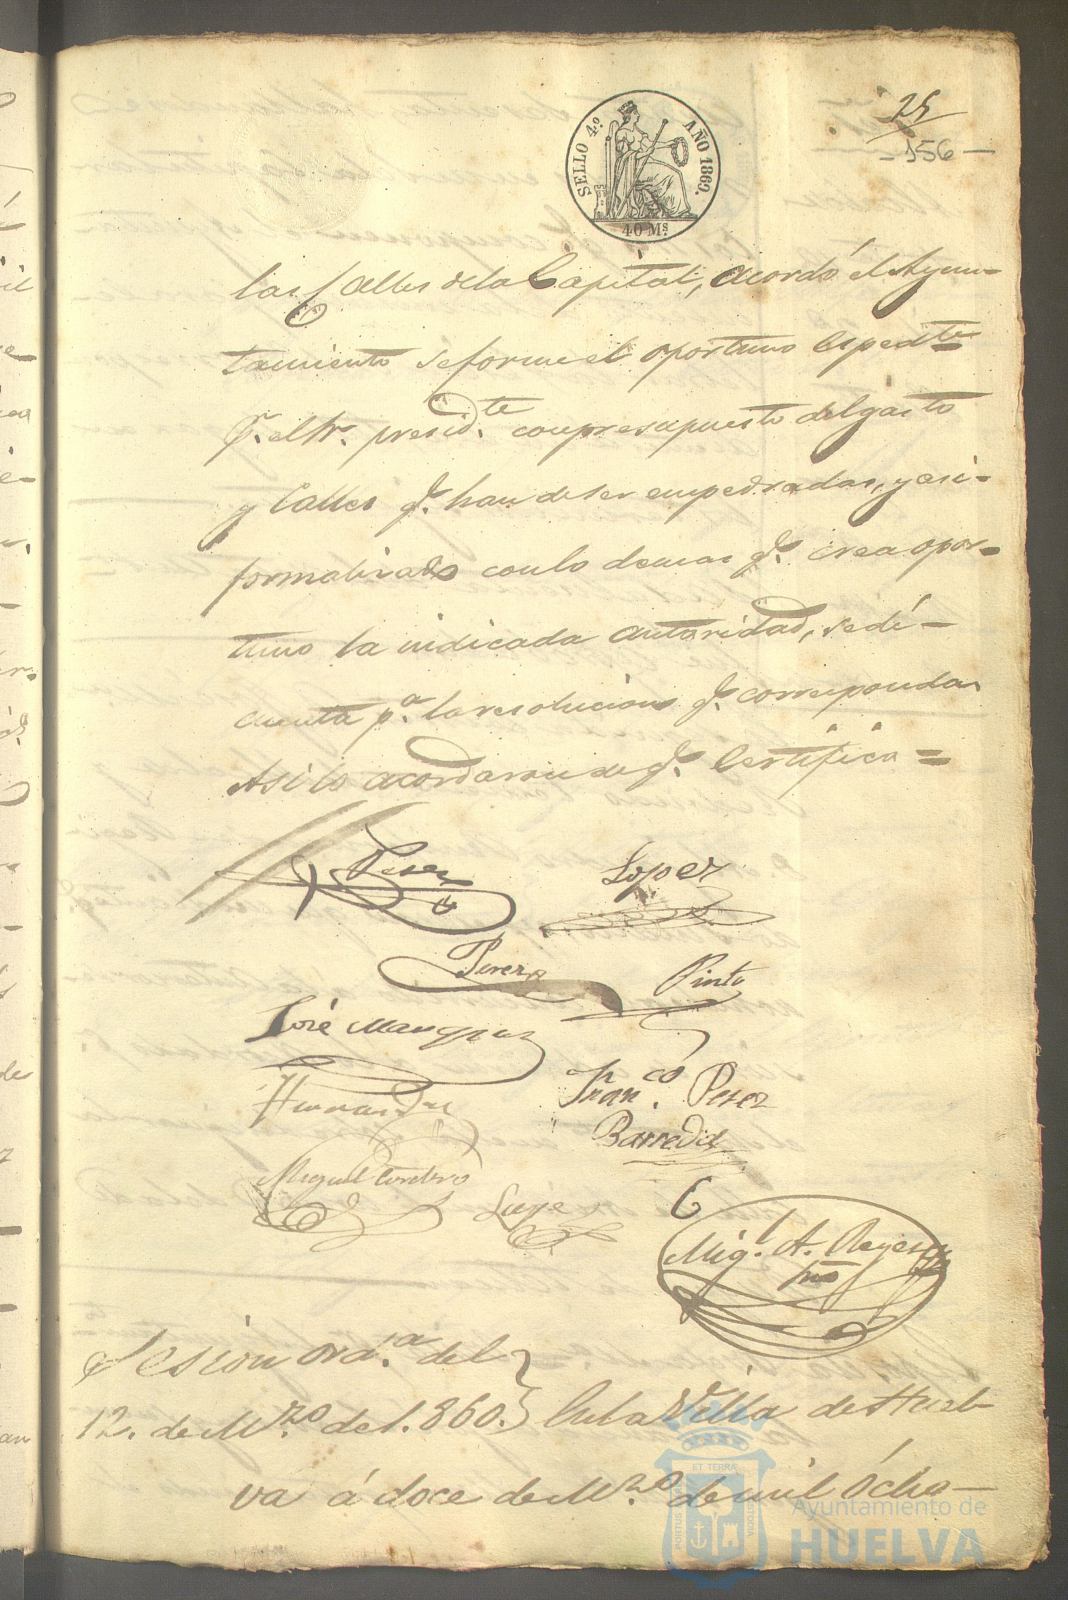 25
-156-
SELLO 4.º AÑO 1860.
40 Ms
las Calles de la Capital, acordó el Ayun-
tamiento se forme el oportuno Espedte
pr. el Sr. presidte. con presupuesto del gasto
y Calles qe. han de ser empedradas, y asi
formalizado con lo demas qe. crea opor-
tuno la indicada autoridad, se dé
cuenta pa. la resolucion qe. corresponda
Asi lo acordaron de qe. Certifico =
Perez Lopez
Perez Pinto
José Marquez
Hernandez Franco. Perez
Barreda
Miguel Cordero
Migl. A. Reyes
Sesion orda. del
12. de Mzo de 1.860. En la Villa de Huel-
va á doce de Mzo. de mil ócho-
PORTUS ET TERRÆ CUSTODIA
Ayuntamiento de
HUELVA